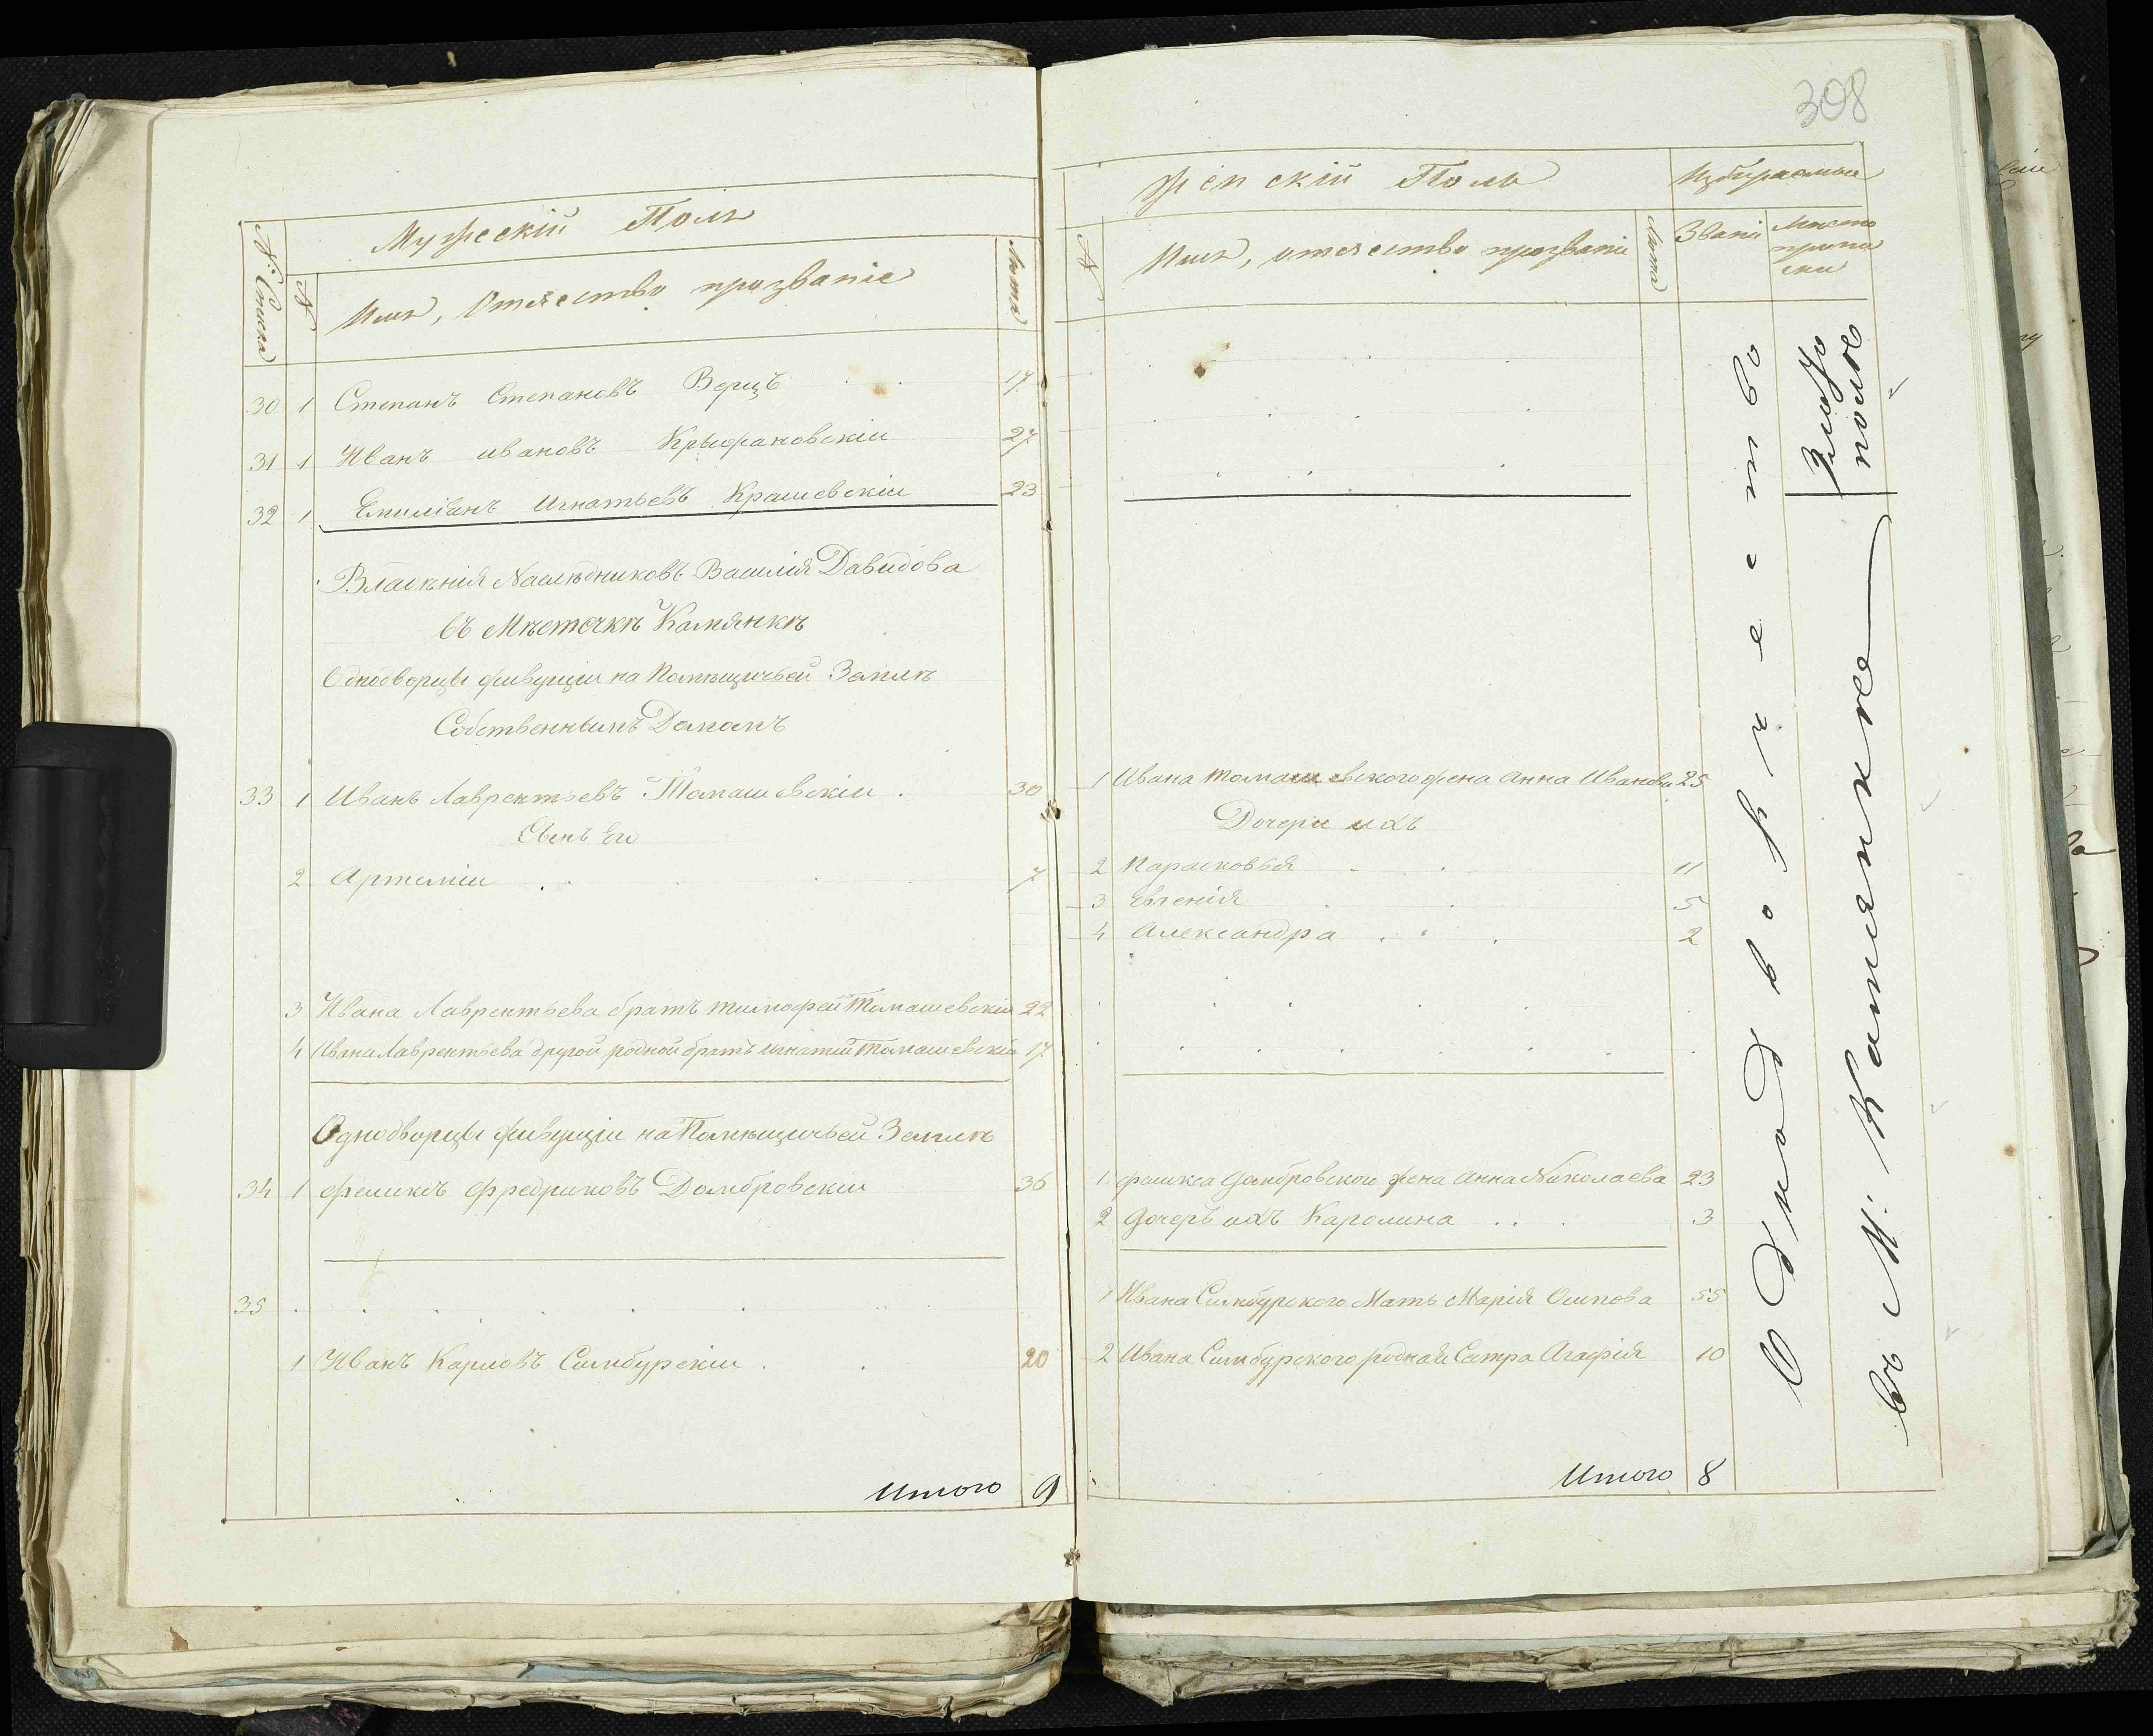 308
Мужескій Полъ
№ Списка
№
Имя, Отечество прозваніе
Лѣта
30 1 Степанъ Степановъ Верцъ 17
31 1 Иванъ ивановъ Крыжановскіи 27
32 1 Емиліанъ Игнатьевъ Крашевскіи 23
Владѣнія Наслѣдниковъ Василія Давидова
въ Мѣстечкѣ Камянкѣ
Однодворцы живущіи на Помѣщичьей Землѣ
Собственнымъ Домомъ
33 1 Иванъ Лаврентьевъ Томашевскіи 30
Сынъ Его
2 Артеміи 7
3 Ивана Лаврентьева братъ тимофей Томашевскіи 22
4 Ивана Лаврентьева другой родной братъ игнатій Томашевскіи 17
Однодворцы живущіи на Помѣщичьей Землѣ
34 1 феликсъ Фредриковъ Домбровскіи 36
35
1 Иванъ Карловъ Симбурскіи 20
Итого 9
Женскій Полъ
Избираемыи
№
Имя, отечество прозваніе
Лѣта
Званіе
Мѣсто приписки
1 Ивана томашевского жена Анна Иванова 25
Дочери ихъ
2 Парасковья 11
3 Евгенія 5
4 Александра 2
1 феликса домбровского жена Анна Николаева 23
2 дочеръ ихъ Каролина 3
1 Ивана Симбурского Мать Марія Осипова 55
2 Ивана Симбурского родная Сстра Агафія 10
Итого 8
Однодворчество
Злато
поле
въ М. Камянке